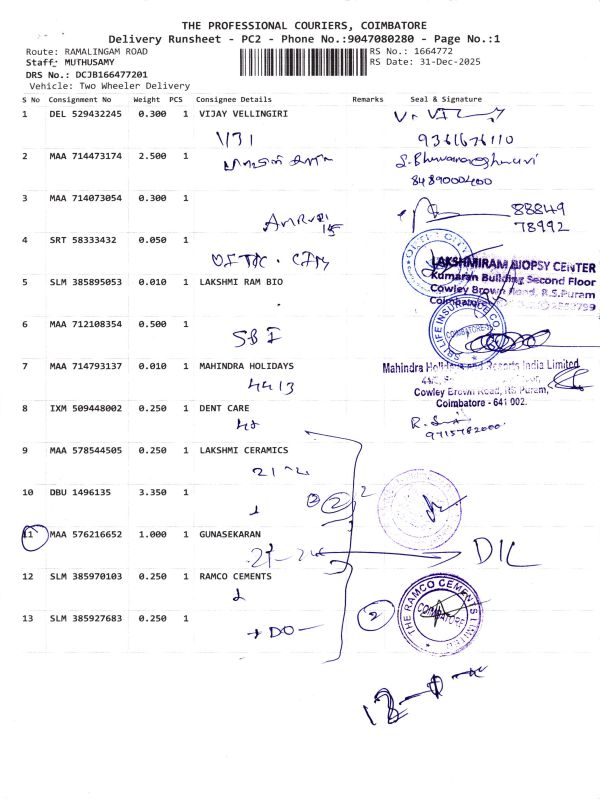 THE PROFESSIONAL COURIERS, COIMBATORE
Delivery Runsheet - PC2 - Phone No.:9047080280 - Page No.:1
Route: RAMALINGAM ROAD RS No.: 1664772
Staff: MUTHUSAMY RS Date: 31-Dec-2025
DRS No.: DCJB166477201
Vehicle: Two Wheeler Delivery
S No Consignment No Weight PCS Consignee Details Remarks Seal & Signature
1 DEL 529432245 0.300 1 VIJAY VELLINGIRI
V31 9361676110
2 MAA 714473174 2.500 1
8489000400
3 MAA 714073054 0.300 1
88849
78992
4 SRT 58333432 0.050 1
LAKSHMIRAM BIOPSY CENTER
Kumaran Building Second Floor
Cowley Brown Road, R.S.Puram
Coimbatore
5 SLM 385895053 0.010 1 LAKSHMI RAM BIO
6 MAA 712108354 0.500 1
SBI
SBI LIFE INSURANCE CO.
COIMBATORE
7 MAA 714793137 0.010 1 MAHINDRA HOLIDAYS
4413
Mahindra Holidays and Resorts India Limited
Cowley Brown Road, RS Puram,
Coimbatore - 641 002.
8 IXM 509448002 0.250 1 DENT CARE
9715782000
9 MAA 578544505 0.250 1 LAKSHMI CERAMICS
10 DBU 1496135 3.350 1
2 2
11 MAA 576216652 1.000 1 GUNASEKARAN
DIL
12 SLM 385970103 0.250 1 RAMCO CEMENTS
THE RAMCO CEMENTS LIMITED
COIMBATORE
13 SLM 385927683 0.250 1
2
DO